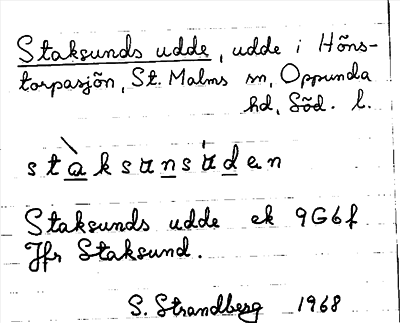 Staksunds udde, udde i Höns-
torpasjön, St. Malms sn, Oppunda
hd, Söd. l.
Staksunds udde ek 9G6f
Jfr Staksund.
S. Strandberg 1968